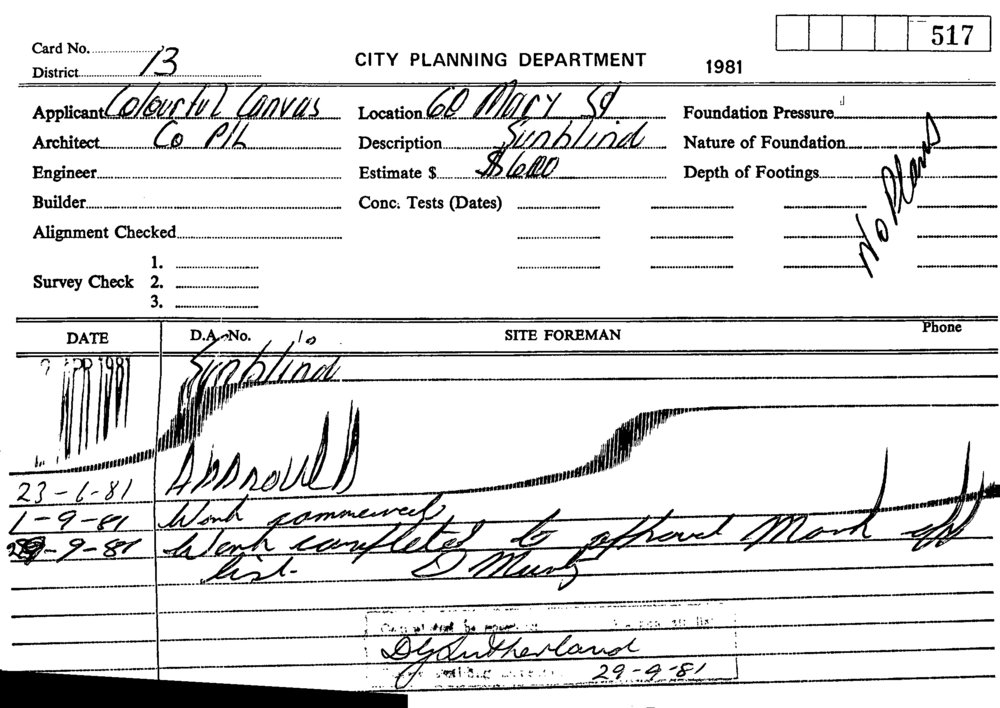 517
Card No.
CITY PLANNING DEPARTMENT 1981
District 13
Applicant Colourful Canvas Location 60 Mary St Foundation Pressure
Architect Co P/L Description Sunblind Nature of Foundation
Engineer Estimate $ $600 Depth of Footings
No Plans
Builder Conc. Tests (Dates)
Alignment Checked
Survey Check 1.
2.
3.
DATE D.A. No. SITE FOREMAN Phone
APR 1981 Sunblind
23-6-81 APPROVED
1-9-81 Work commenced
29-9-81 Work completed to approval Mark off
list.
29-9-81